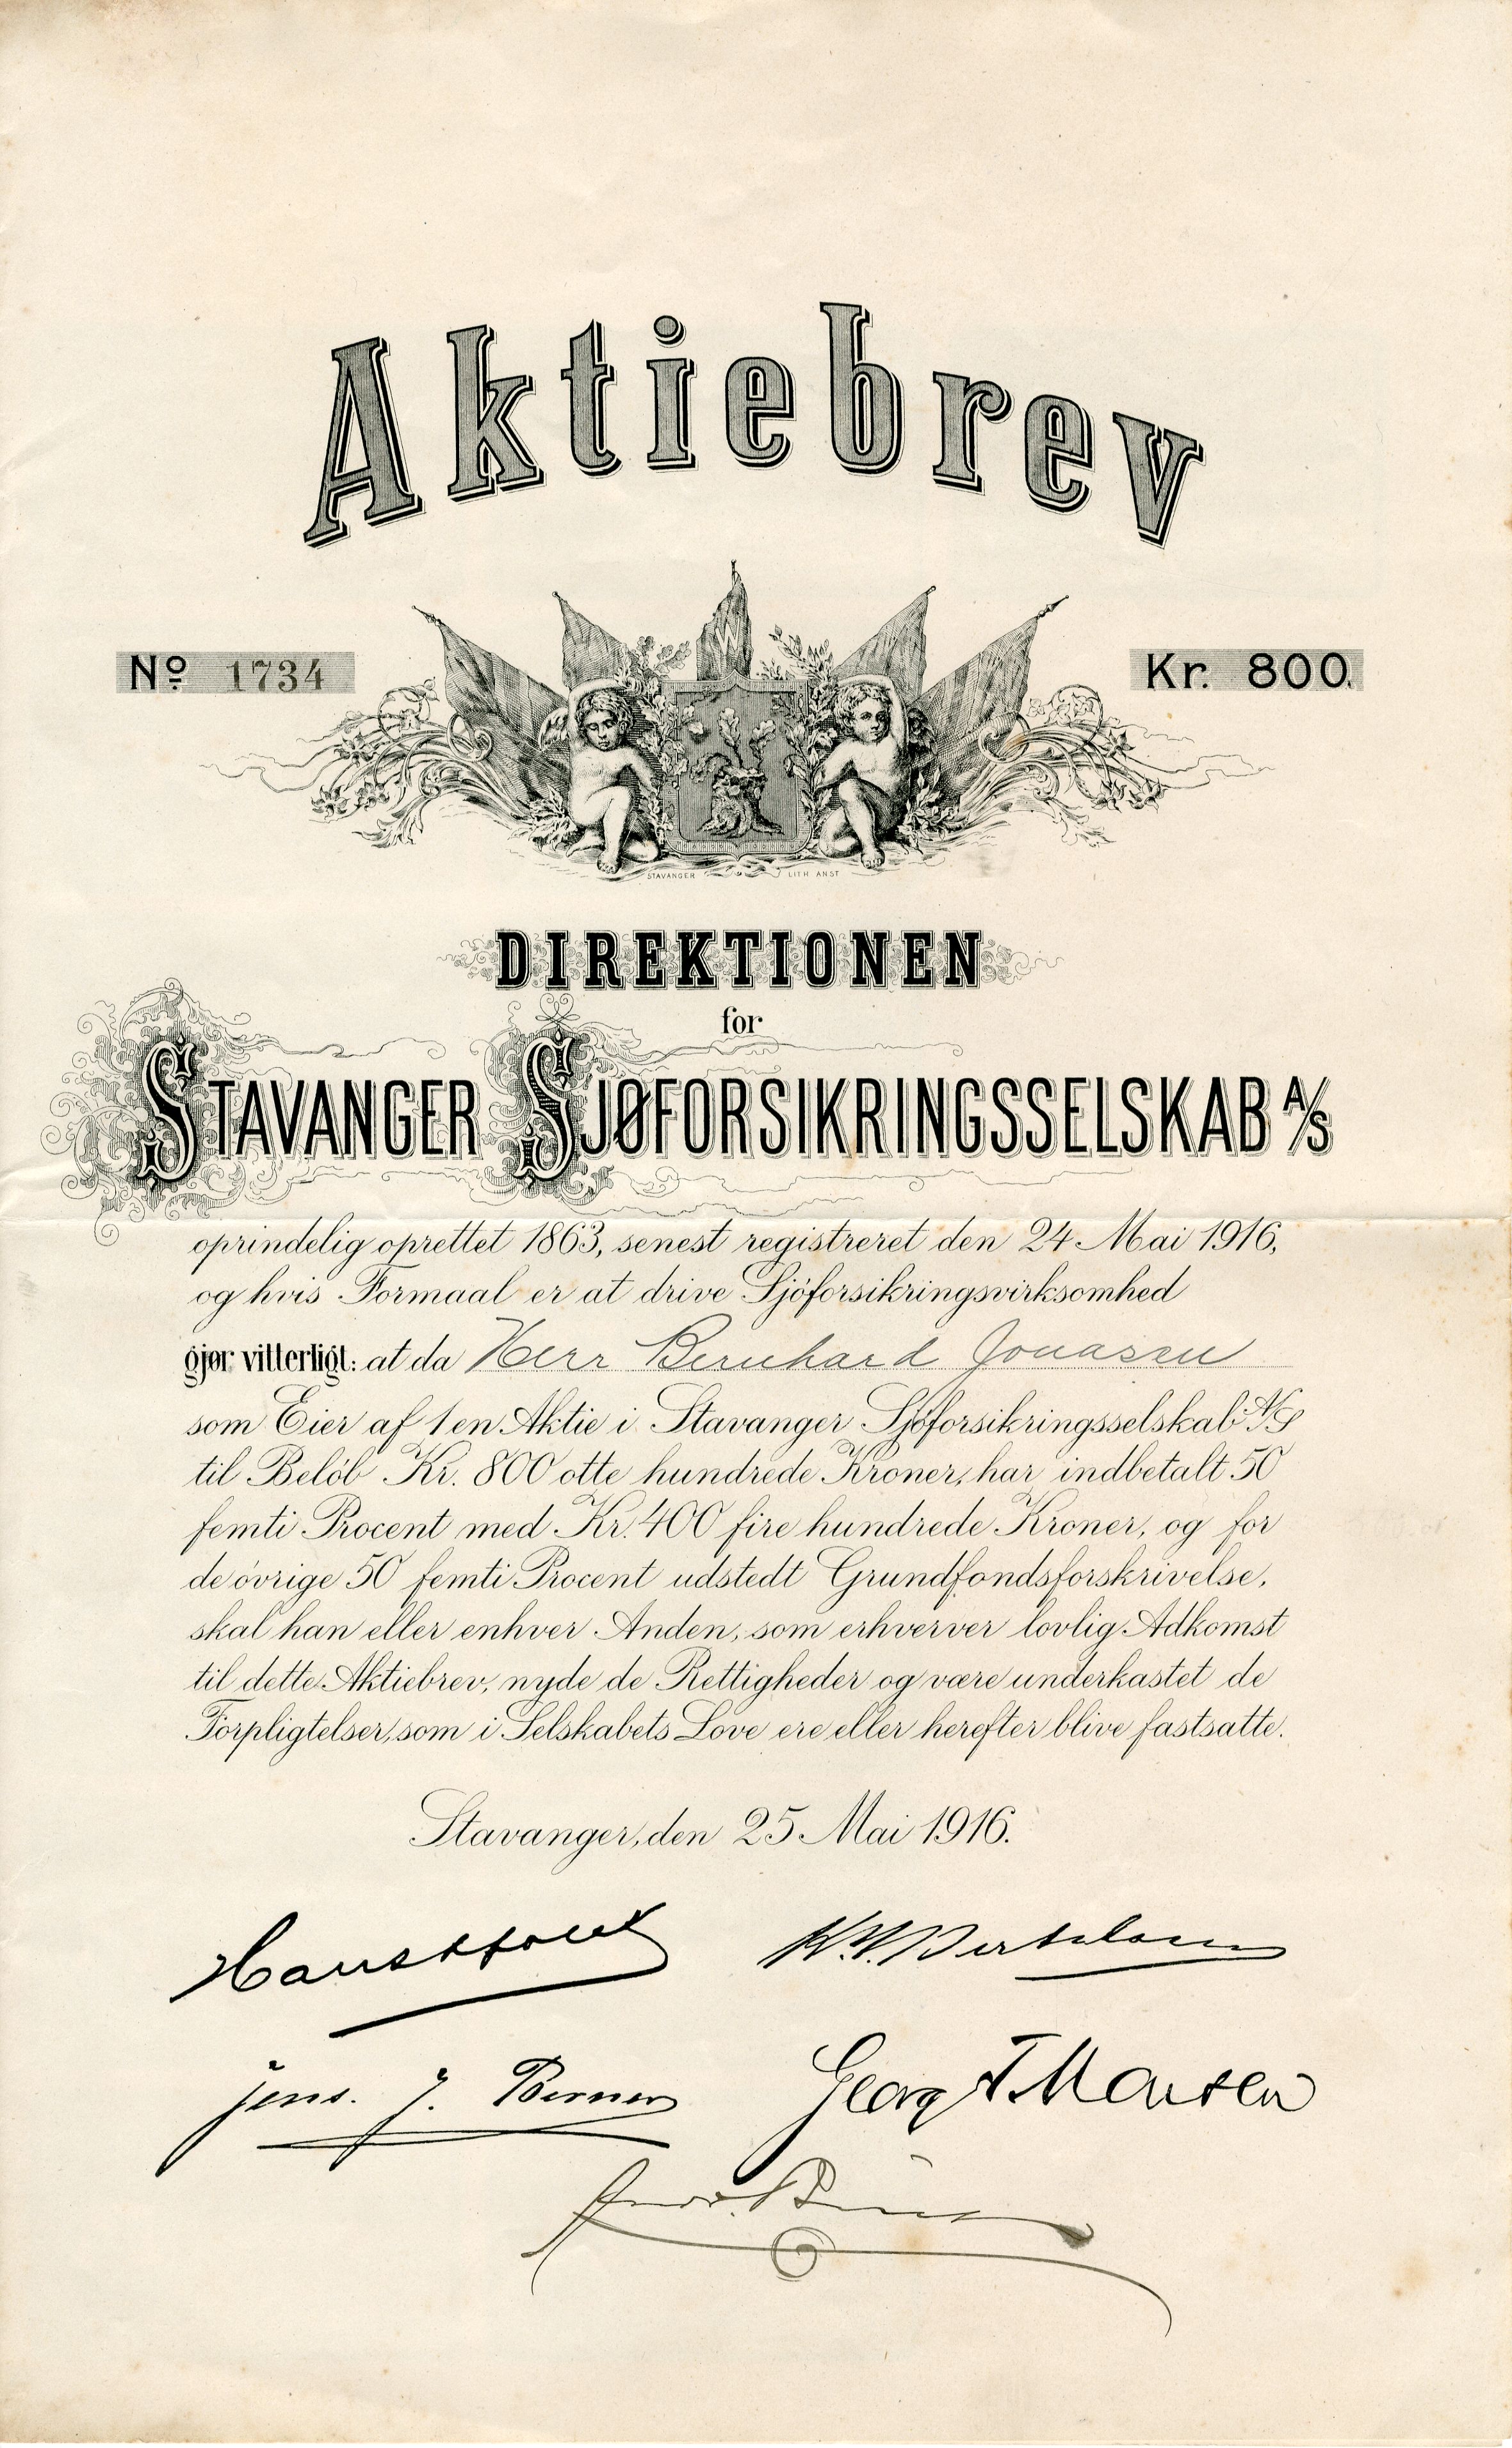 Aktiebrev
No 1734
Kr. 800.
W
STAVANGER LITH ANST
DIREKTIONEN
for
STAVANGER SJØFORSIKRINGSSELSKAB A/S
oprindelig oprettet 1863, senest registreret den 24 Mai 1916,
og hvis Formaal er at drive Sjöforsikringsvirksomhed
gjør vitterligt: at da Herr Bernhard Jonassen
som Eier af 1 en Aktie i Stavanger Sjöforsikringsselskab A/S
til Belöb Kr. 800 otte hundrede Kroner, har indbetalt 50
femti Procent med Kr. 400 fire hundrede Kroner, og for
de övrige 50 femti Procent udstedt Grundfondsforskrivelse,
skal han eller enhver Anden, som erhverver lovlig Adkomst
til dette Aktiebrev, nyde de Rettigheder og være underkastet de
Forpligtelser, som i Selskabets Love ere eller herefter blive fastsatte.
Stavanger, den 25 Mai 1916.
Jens. J. Berner
Georg T. Monsen